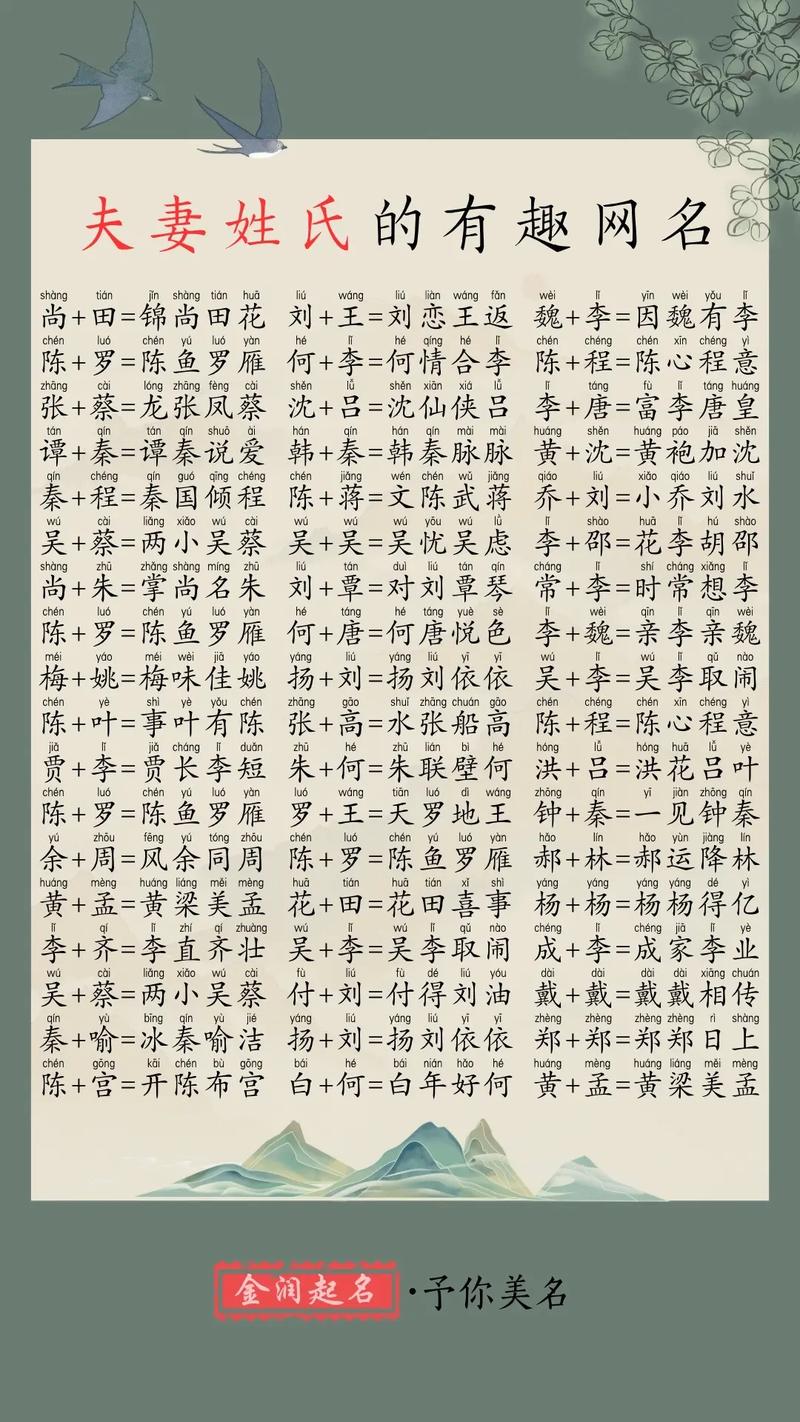 夫妻姓氏的有趣网名
shàng tián jǐn shàng tián huā liú wáng liú liàn wáng fǎn wèi lǐ yīn wèi yǒu lǐ
尚+田=锦尚田花 刘+王=刘恋王返 魏+李=因魏有李
chén luó chén yú luó yàn hé lǐ hé qíng hé lǐ chén chéng chén xīn chéng yì
陈+罗=陈鱼罗雁 何+李=何情合李 陈+程=陈心程意
zhāng cài lóng zhāng fèng cài shěn lǚ shěn xiān xiá lǚ lǐ táng fù lǐ táng huáng
张+蔡=龙张凤蔡 沈+吕=沈仙侠吕 李+唐=富李唐皇
tán qín tán qín shuō ài hán qín hán qín mài mài huáng shěn huáng páo jiā shěn
谭+秦=谭秦说爱 韩+秦=韩秦脉脉 黄+沈=黄袍加沈
qín chéng qín guó qīng chéng chén jiǎng wén chén wǔ jiǎng qiáo liú xiǎo qiáo liú shuǐ
秦+程=秦国倾程 陈+蒋=文陈武蒋 乔+刘=小乔刘水
wú cài liǎng xiǎo wú cài wú wú wú yōu wú lǜ lǐ shào huā lǐ hú shào
吴+蔡=两小吴蔡 吴+吴=吴忧吴虑 李+邵=花李胡邵
shàng zhū zhǎng shàng míng zhū liú tán duì liú tán qín cháng lǐ shí cháng xiǎng lǐ
尚+朱=掌尚名朱 刘+覃=对刘覃琴 常+李=时常想李
chén luó chén yú luó yàn hé táng hé táng yuè sè lǐ wèi qīn lǐ qīn wèi
陈+罗=陈鱼罗雁 何+唐=何唐悦色 李+魏=亲李亲魏
méi yáo méi wèi jiā yáo yáng liú yáng liú yī yī wú lǐ wú lǐ qǔ nào
梅+姚=梅味佳姚 扬+刘=扬刘依依 吴+李=吴李取闹
chén yè shì yè yǒu chén zhāng gāo shuǐ zhāng chuán gāo chén chéng chén xīn chéng yì
陈+叶=事叶有陈 张+高=水张船高 陈+程=陈心程意
jiǎ lǐ jiǎ cháng lǐ duǎn zhū hé zhū lián bì hé hóng lǚ hóng huā lǚ yè
贾+李=贾长李短 朱+何=朱联壁何 洪+吕=洪花吕叶
chén luó chén yú luó yàn luó wáng tiān luó dì wáng zhōng qín yī jiàn zhōng qín
陈+罗=陈鱼罗雁 罗+王=天罗地王 钟+秦=一见钟秦
yú zhōu fēng yú tóng zhōu chén luó chén yú luó yàn hǎo lín hǎo yùn jiàng lín
余+周=风余同周 陈+罗=陈鱼罗雁 郝+林=郝运降林
huáng mèng huáng liáng měi mèng huā tián huā tián xǐ shì yáng yáng yáng yáng dé yì
黄+孟=黄梁美孟 花+田=花田喜事 杨+杨=杨杨得亿
lǐ qí lǐ zhí qí zhuàng wú lǐ wú lǐ qǔ nào chéng lǐ chéng jiā lǐ yè
李+齐=李直齐壮 吴+李=吴李取闹 成+李=成家李业
wú cài liǎng xiǎo wú cài fù liú fù dé liú yóu dài dài dài dài xiāng chuán
吴+蔡=两小吴蔡 付+刘=付得刘油 戴+戴=戴戴相传
qín yù bīng qín yù jié yáng liú yáng liú yī yī zhèng zhèng zhèng zhèng rì shàng
秦+喻=冰秦喻洁 扬+刘=扬刘依依 郑+郑=郑郑日上
chén gōng kāi chén bù gōng bái hé bái nián hǎo hé huáng mèng huáng liáng měi mèng
陈+宫=开陈布宫 白+何=白年好何 黄+孟=黄梁美孟
金润起名·予你美名